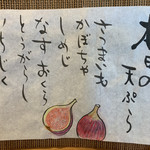 本日の
天ぷら
さつまいも
かぼちゃ
しめじ
なす おくら
とうがらし
いちじく